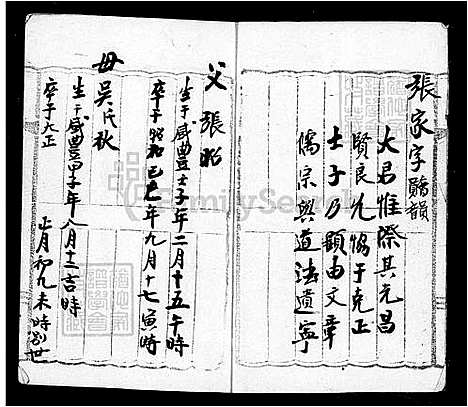 張家字勻韻
大君惟際其元昌
賢良允協于克正
士子乃顯由文章
儒宗興道法遺寧
父 張昭
生于咸豐壬子年二月十五午時
卒于昭和己巳年九月十七寅時
母 吳氏秋
生于咸豐甲子年八月十二吉時
卒于大正 正月初九未時別世
FamilySearch